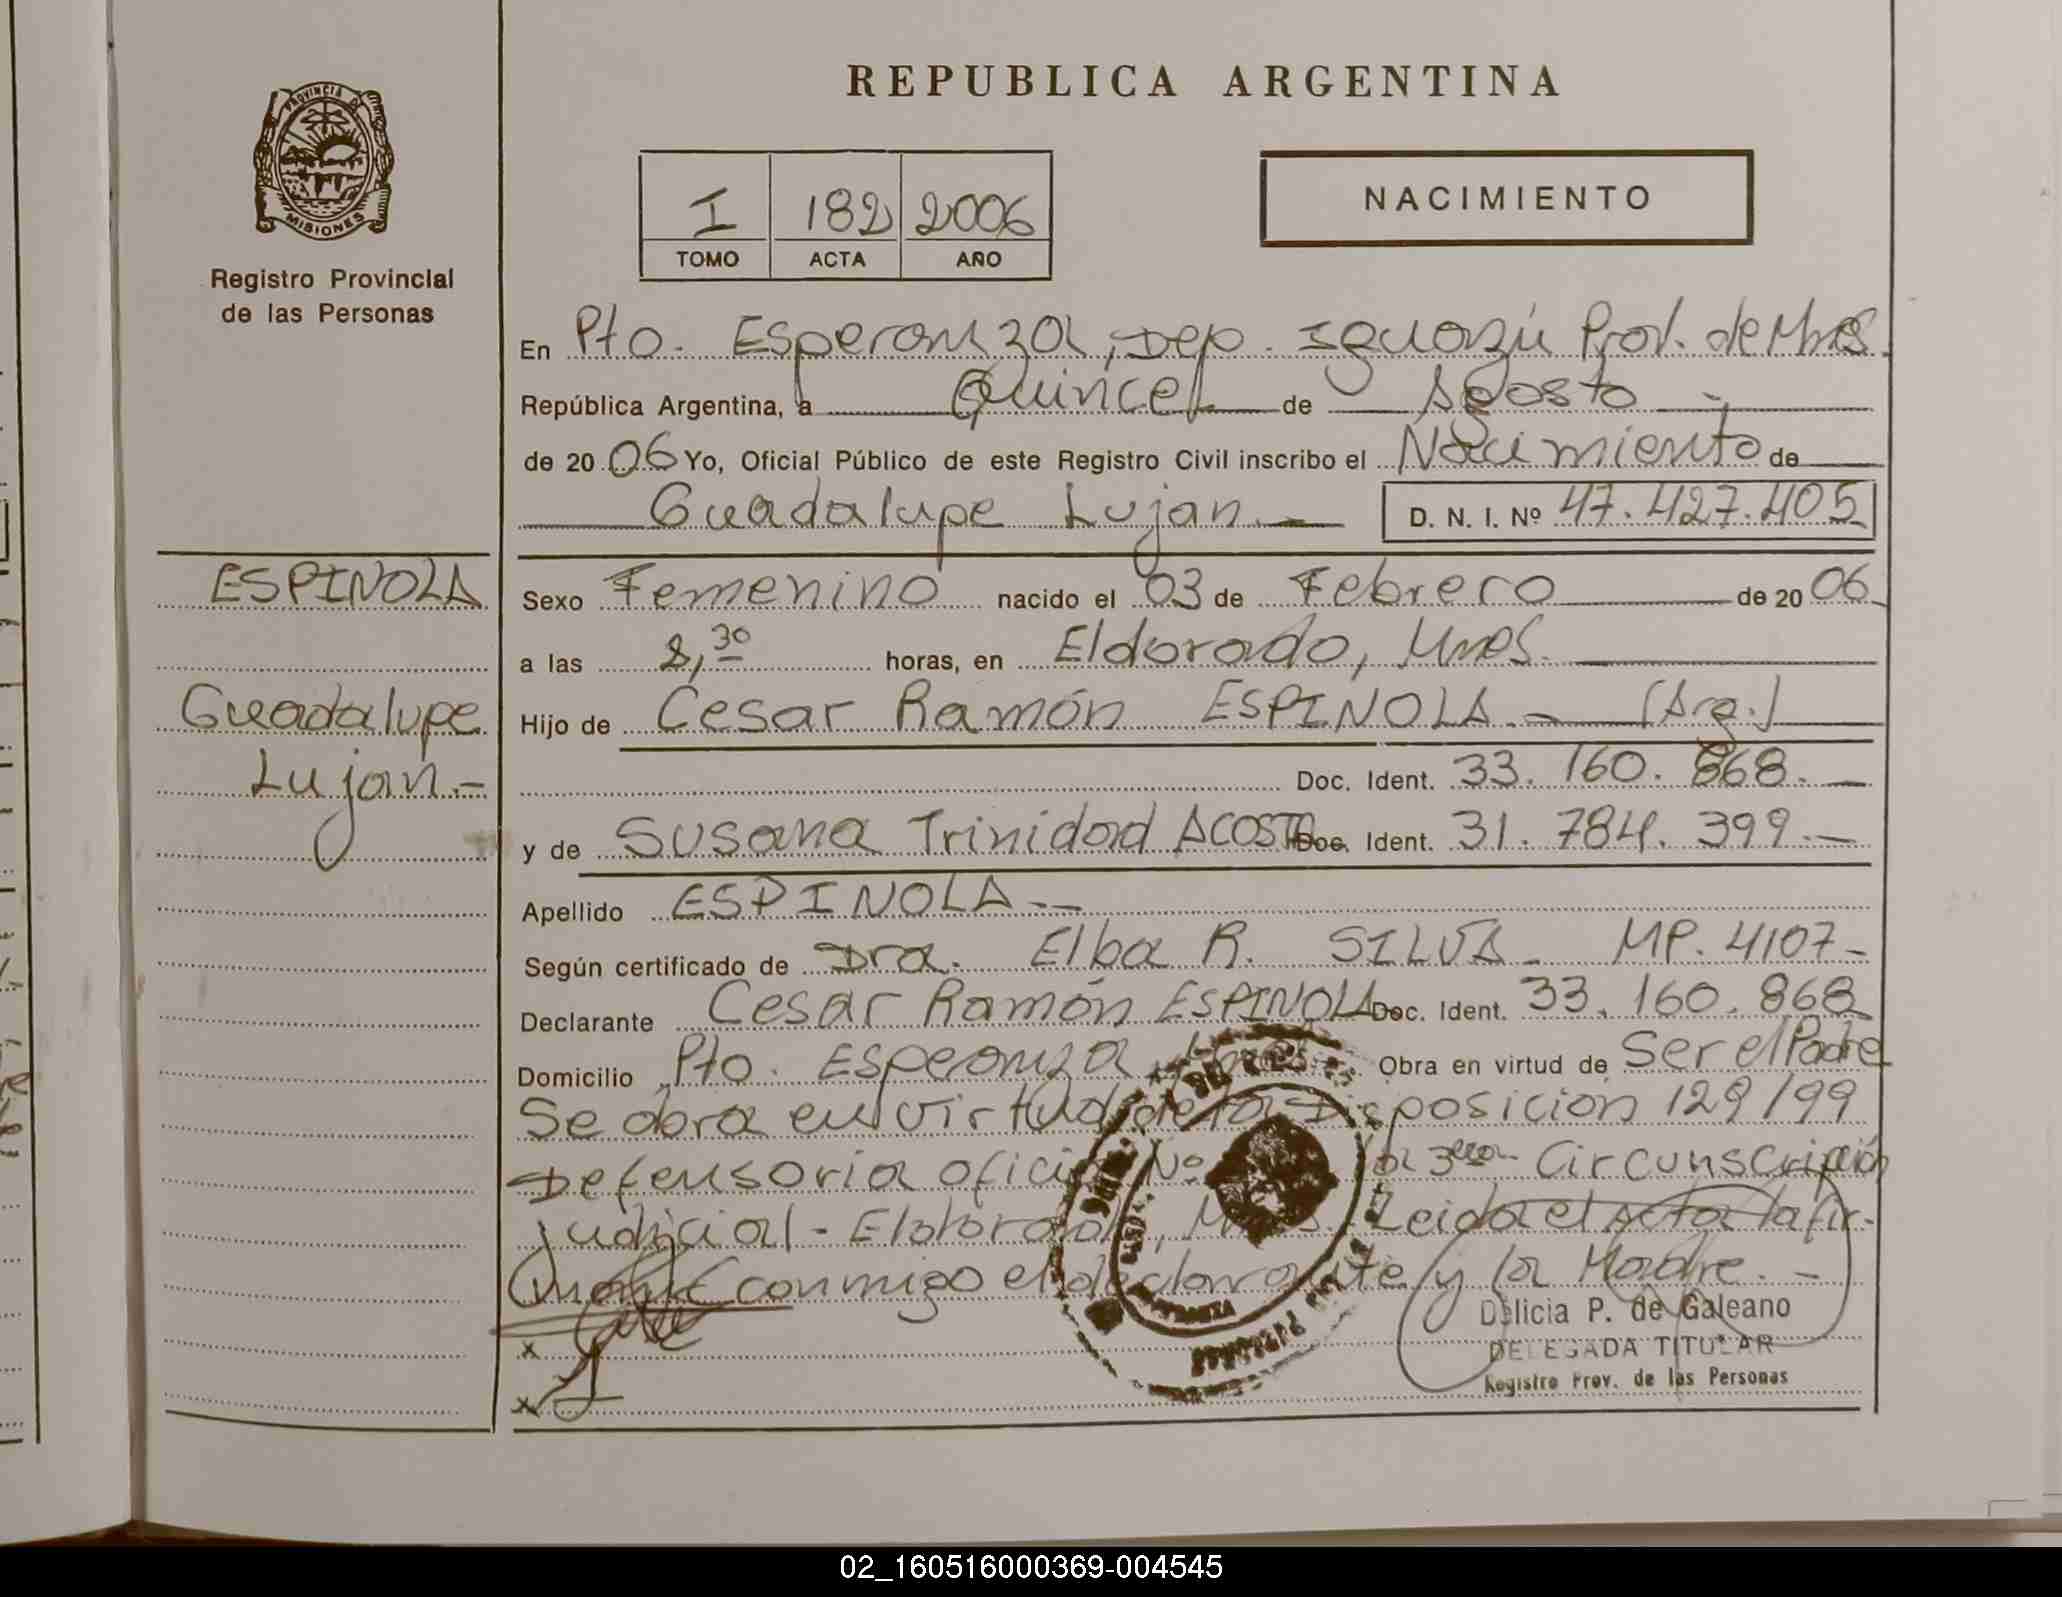 REPUBLICA ARGENTINA
PROVINCIA D
MISIONES
Registro Provincial
de las Personas
I 182 2006
TOMO ACTA AÑO
NACIMIENTO
En Pto. Esperanza, Dep. Iguazú Prov. de Mnes.
República Argentina, a Quince de Agosto
de 2006 Yo, Oficial Público de este Registro Civil inscribo el Nacimiento de
Guadalupe Lujan.— D. N. I. Nº 47.427.405
ESPINOLA
Guadalupe
Lujan.-
Sexo Femenino nacido el 03 de Febrero de 2006
a las 8,30 horas, en Eldorado, Mnes.
Hijo de Cesar Ramón ESPINOLA.- (Arg.)
Doc. Ident. 33.160.868.-
y de Susana Trinidad ACOSTA Doc. Ident. 31.784.399.-
Apellido ESPINOLA.--
Según certificado de Dra. Elba R. SILVA. MP. 4107-
Declarante Cesar Ramón ESPINOLA Doc. Ident. 33.160.868
Domicilio Pto. Esperanza Obra en virtud de Ser el Padre
Se obra en virtud de la Disposicion 129/99
Defensoria oficial Nº la 3era Circunscripción
Judicial - Eldorado, Leida el Acta la fir-
man conmigo el declarante y la Madre.-
Delicia P. de Galeano
DELEGADA TITULAR
Registro Prov. de las Personas
x
x
02_160516000369-004545